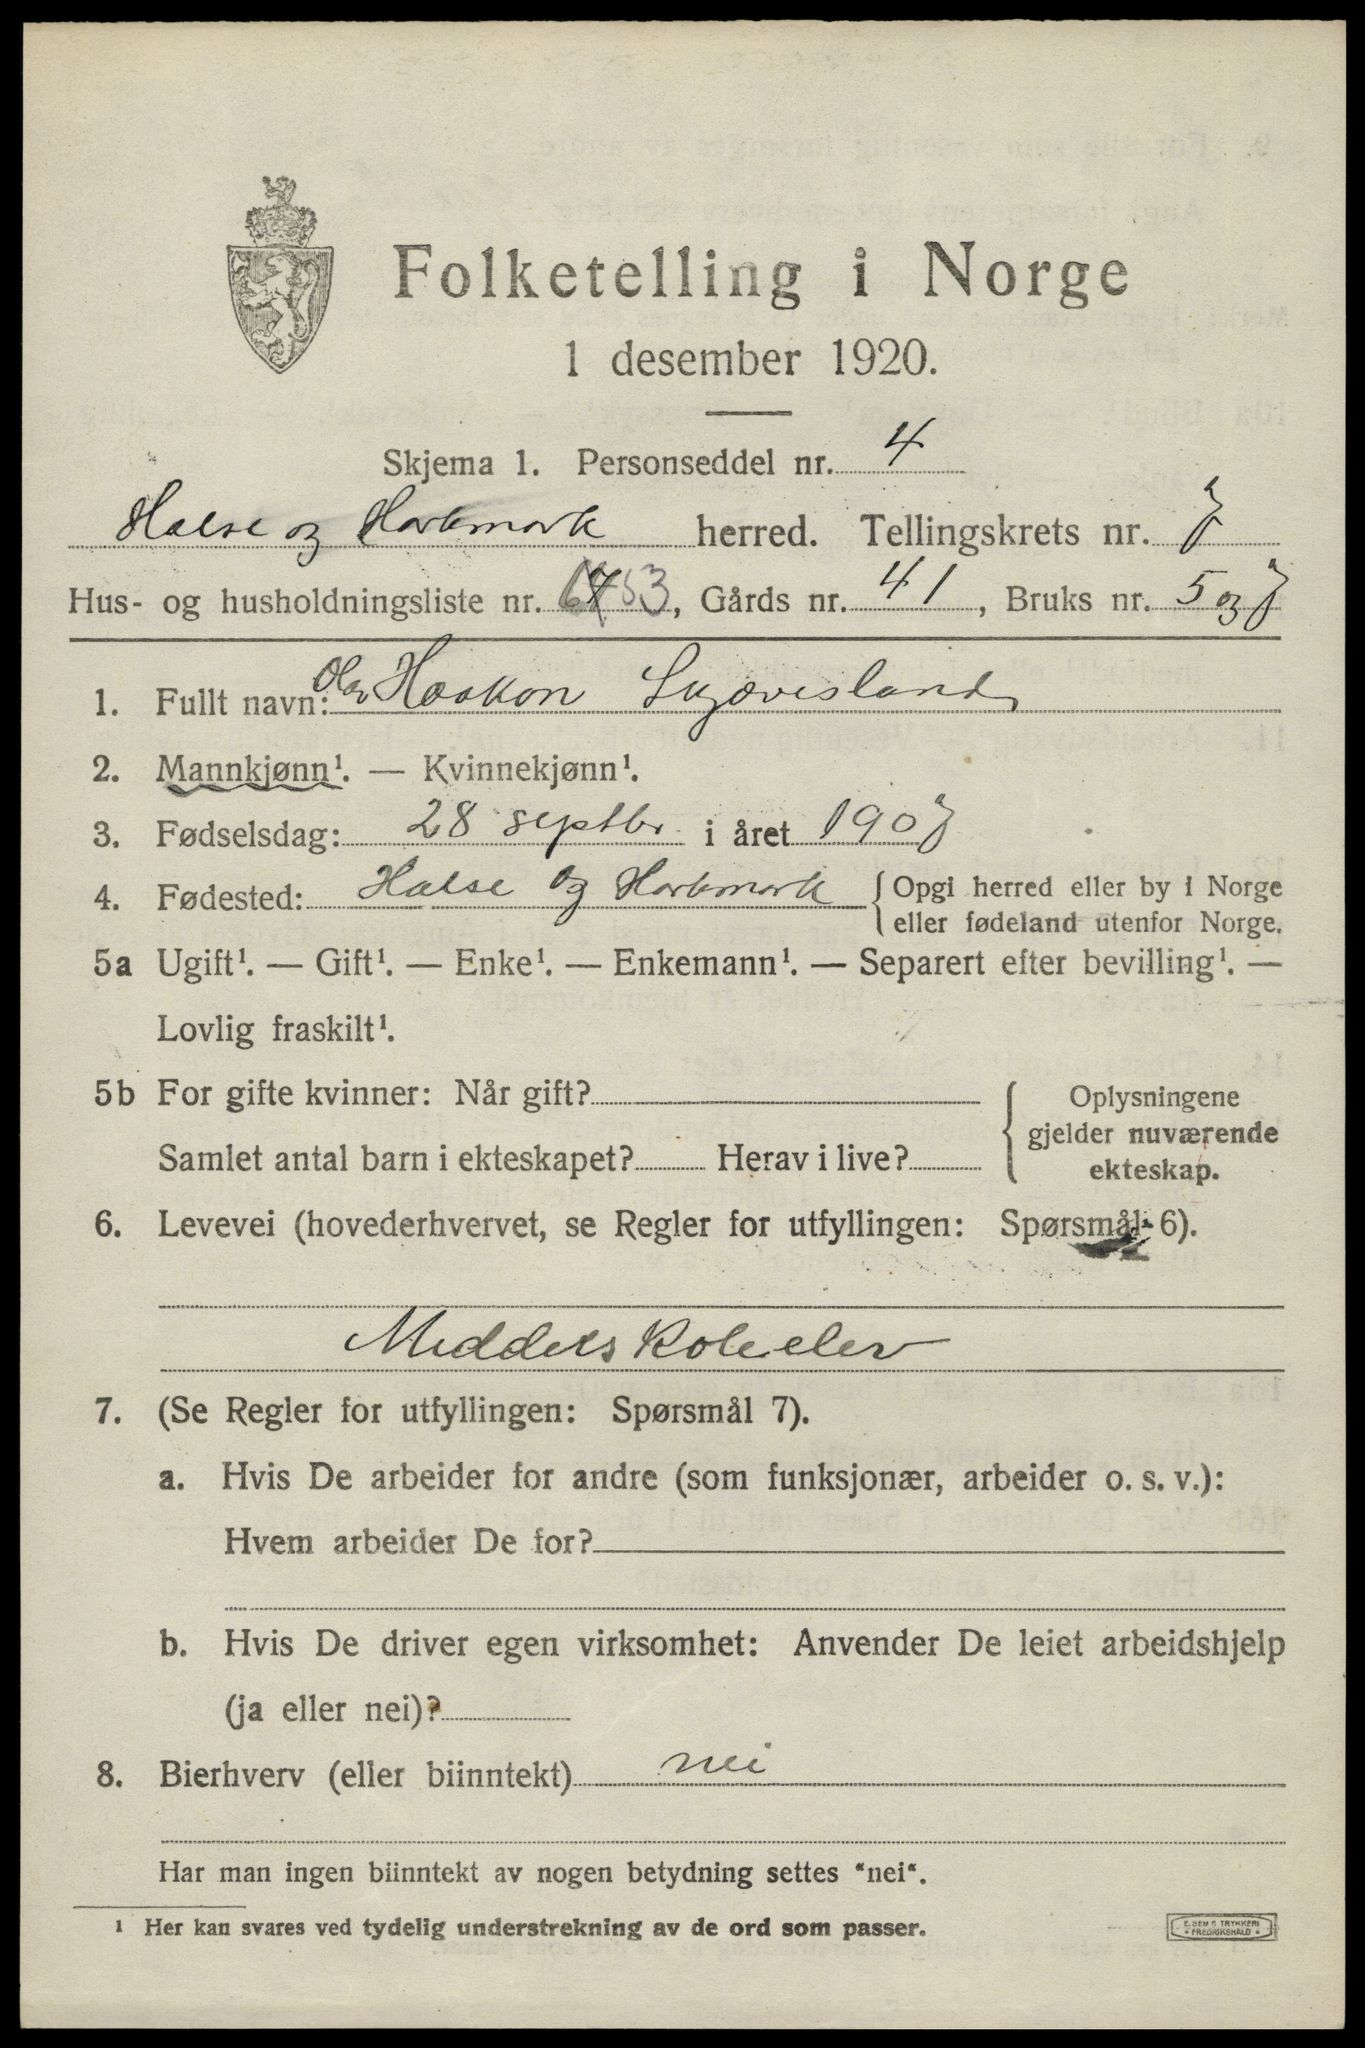 Folketelling i Norge
1 desember 1920.
Skjema 1. Personseddel nr. 4
Halse og Harkmark herred. Tellingskrets nr. 7
Hus- og husholdningsliste nr. 53, Gårds nr. 41, Bruks nr. 5 og 7
1. Fullt navn: Olav Haakon Skjævesland
2. Mannkjønn¹. — Kvinnekjønn¹.
3. Fødselsdag: 28 septbr i året 1907
4. Fødested: Halse og Harkmark { Opgi herred eller by i Norge
eller fødeland utenfor Norge.
5a Ugift¹. — Gift¹. — Enke¹. — Enkemann¹. — Separert efter bevilling¹. —
Lovlig fraskilt¹.
5b For gifte kvinner: Når gift?
Samlet antal barn i ekteskapet? Herav i live?
{ Oplysningene
gjelder nuværende
ekteskap.
6. Levevei (hovederhvervet, se Regler for utfyllingen: Spørsmål 6).
Middelskoleelev
7. (Se Regler for utfyllingen: Spørsmål 7).
a. Hvis De arbeider for andre (som funksjonær, arbeider o. s. v.):
Hvem arbeider De for?
b. Hvis De driver egen virksomhet: Anvender De leiet arbeidshjelp
(ja eller nei)?
8. Bierhverv (eller biinntekt) nei
Har man ingen biinntekt av nogen betydning settes "nei".
¹ Her kan svares ved tydelig understrekning av de ord som passer.
E. SEM'S TRYKKERI
FREDRIKSHALD